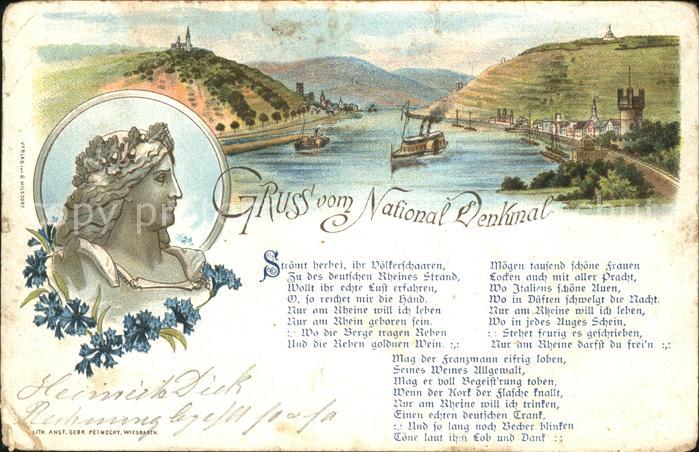 Gruss vom National Denkmal
VERLAG VON B. HILSDORF
Strömt herbei, ihr Völkerschaaren,
Zu des deutschen Rheines Strand,
Wollt ihr echte Lust erfahren,
O, so reichet mir die Hand.
Nur am Rheine will ich leben
Nur am Rhein geboren sein.
:,: Wo die Berge tragen Reben
Und die Reben goldnen Wein. :,:
Mögen tausend schöne Frauen
Locken auch mit aller Pracht,
Wo Italiens schöne Auen,
Wo in Düften schwelgt die Nacht.
Nur am Rheine will ich leben,
Wo in jedes Auges Schein,
:,: Stehet feurig es geschrieben,
Nur am Rheine darfst du frei'n :,:
Mag der Franzmann eifrig loben,
Seines Weines Allgewalt,
Mag er voll Begeist'rung toben,
Wenn der Kork der Flasche knallt,
Nur am Rheine will ich trinken,
Einen echten deutschen Trank,
:,: Und so lang noch Becher blinken
Töne laut ihm Lob und Dank :,:
Heinrich Dick
Rechnung
LITH. ANST. GEBR. PETMECKY, WIESBADEN.